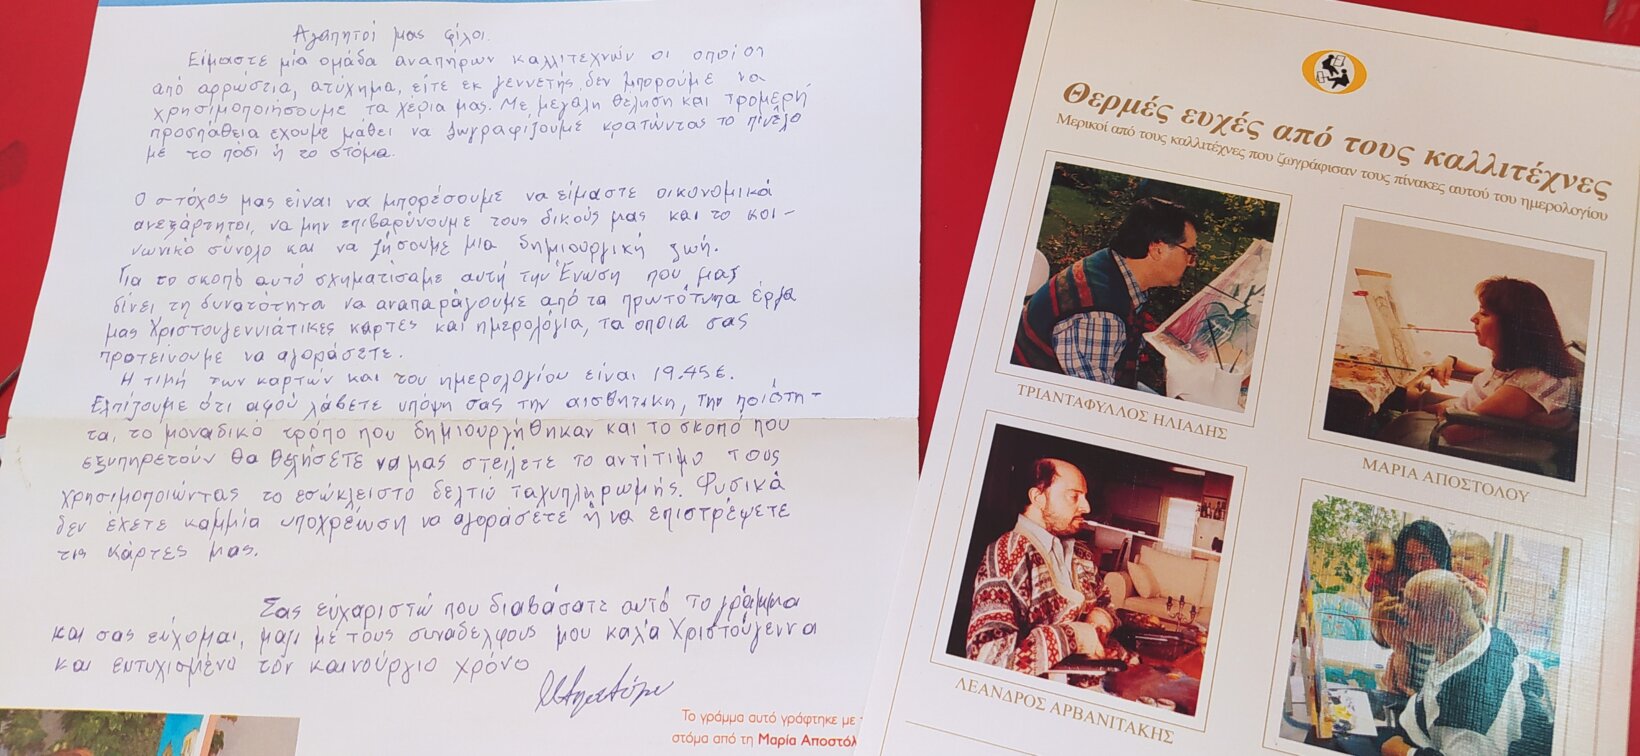 Αγαπητοί μας φίλοι.
Είμαστε μία ομάδα αναπήρων καλλιτεχνών οι οποίοι
από αρρώστια, ατύχημα, είτε εκ γεννετής δεν μπορούμε να
χρησιμοποιήσουμε τα χέρια μας. Με μεγάλη θέληση και τρομερή
προσπάθεια έχουμε μάθει να ζωγραφίζουμε κρατώντας το πινέλο
με το πόδι ή το στόμα.
Ο στόχος μας είναι να μπορέσουμε να είμαστε οικονομικά
ανεξάρτητοι, να μην επιβαρύνουμε τους δικούς μας και το κοι-
νωνικό σύνολο και να ζήσουμε μια δημιουργική ζωή.
Για το σκοπό αυτό σχηματίσαμε αυτή την Ένωση που μας
δίνει τη δυνατότητα να αναπαράγουμε από τα πρωτότυπα έργα
μας Χριστουγεννιάτικες κάρτες και ημερολόγια, τα οποία σας
προτείνουμε να αγοράσετε.
Η τιμή των καρτών και του ημερολογίου είναι 19.45€.
Ελπίζουμε ότι αφού λάβετε υπόψη σας την αισθητική, την ποιότη-
τα, το μοναδικό τρόπο που δημιουργήθηκαν και το σκοπό που
εξυπηρετούν θα θελήσετε να μας στείλετε το αντίτιμο τους
χρησιμοποιώντας το εσώκλειστο δελτίο ταχυπληρωμής. Φυσικά
δεν έχετε καμμία υποχρέωση να αγοράσετε ή να επιστρέψετε
τις κάρτες μας.
Σας ευχαριστώ που διαβάσατε αυτό το γράμμα
και σας εύχομαι, μαζί με τους συναδέλφους μου καλά Χριστούγεννα
και ευτυχισμένο τον καινούργιο χρόνο
Το γράμμα αυτό γράφτηκε με
στόμα από τη Μαρία Αποστόλ
Θερμές ευχές από τους καλλιτέχνες
Μερικοί από τους καλλιτέχνες που ζωγράφισαν τους πίνακες αυτού του ημερολογίου
ΤΡΙΑΝΤΑΦΥΛΛΟΣ ΗΛΙΑΔΗΣ
ΜΑΡΙΑ ΑΠΟΣΤΟΛΟΥ
ΛΕΑΝΔΡΟΣ ΑΡΒΑΝΙΤΑΚΗΣ